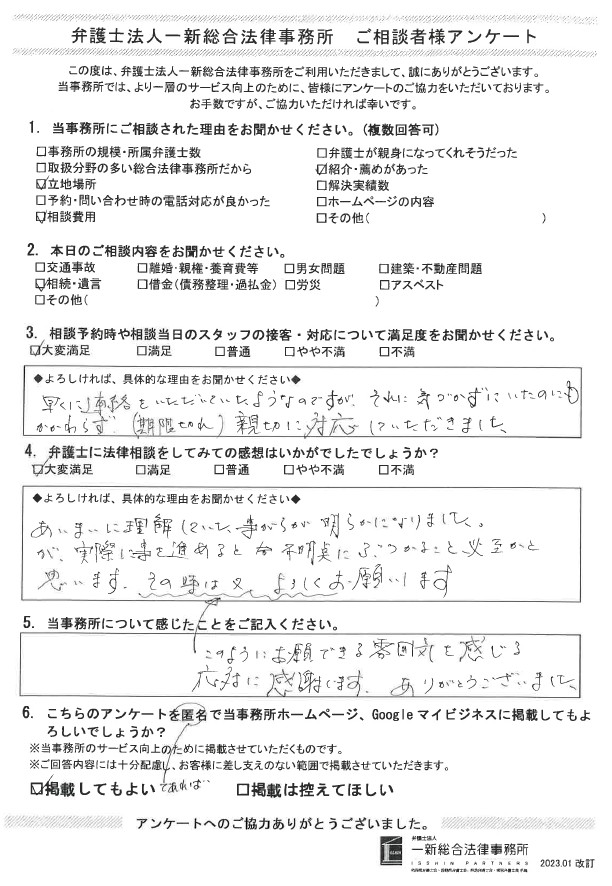 弁護士法人一新総合法律事務所 ご相談者様アンケート
この度は、弁護士法人一新総合法律事務所をご利用いただきまして、誠にありがとうございます。
当事務所では、より一層のサービス向上のために、皆様にアンケートのご協力をいただいております。
お手数ですが、ご協力いただければ幸いです。
1. 当事務所にご相談された理由をお聞かせください。(複数回答可)
□事務所の規模・所属弁護士数 □弁護士が親身になってくれそうだった
□取扱分野の多い総合法律事務所だから ☑紹介・薦めがあった
☑立地場所 □解決実績数
□予約・問い合わせ時の電話対応が良かった □ホームページの内容
☑相談費用 □その他( )
2. 本日のご相談内容をお聞かせください。
□交通事故 □離婚・親権・養育費等 □男女問題 □建築・不動産問題
☑相続・遺言 □借金(債務整理・過払金) □労災 □アスベスト
□その他( )
3. 相談予約時や相談当日のスタッフの接客・対応について満足度をお聞かせください。
☑大変満足 □満足 □普通 □やや不満 □不満
◆よろしければ、具体的な理由をお聞かせください◆
早くに連絡をいただいていたようなのですが、それに気づかずにいたのにも
かかわらず(期限切れ)親切に対応していただきました
4. 弁護士に法律相談をしてみての感想はいかがでしたでしょうか?
☑大変満足 □満足 □普通 □やや不満 □不満
◆よろしければ、具体的な理由をお聞かせください◆
あいまいに理解していた事がらが明らかになりました。
が、実際に事を進めると 不明点にぶつかること必至かと
思います。その時は又、よろしくお願いします
5. 当事務所について感じたことをご記入ください。
このようにお願できる雰囲気を感じる
応対に感謝します。ありがとうございました。
6. こちらのアンケートを匿名で当事務所ホームページ、Googleマイビジネスに掲載してもよ
ろしいでしょうか?
※当事務所のサービス向上のために掲載させていただくものです。
※ご回答内容には十分配慮し、お客様に差し支えのない範囲で掲載させていただきます。
☑掲載してもよい であれば □掲載は控えてほしい
アンケートへのご協力ありがとうございました。
弁護士法人
一新総合法律事務所
ISSHIN PARTNERS
2023.01 改訂